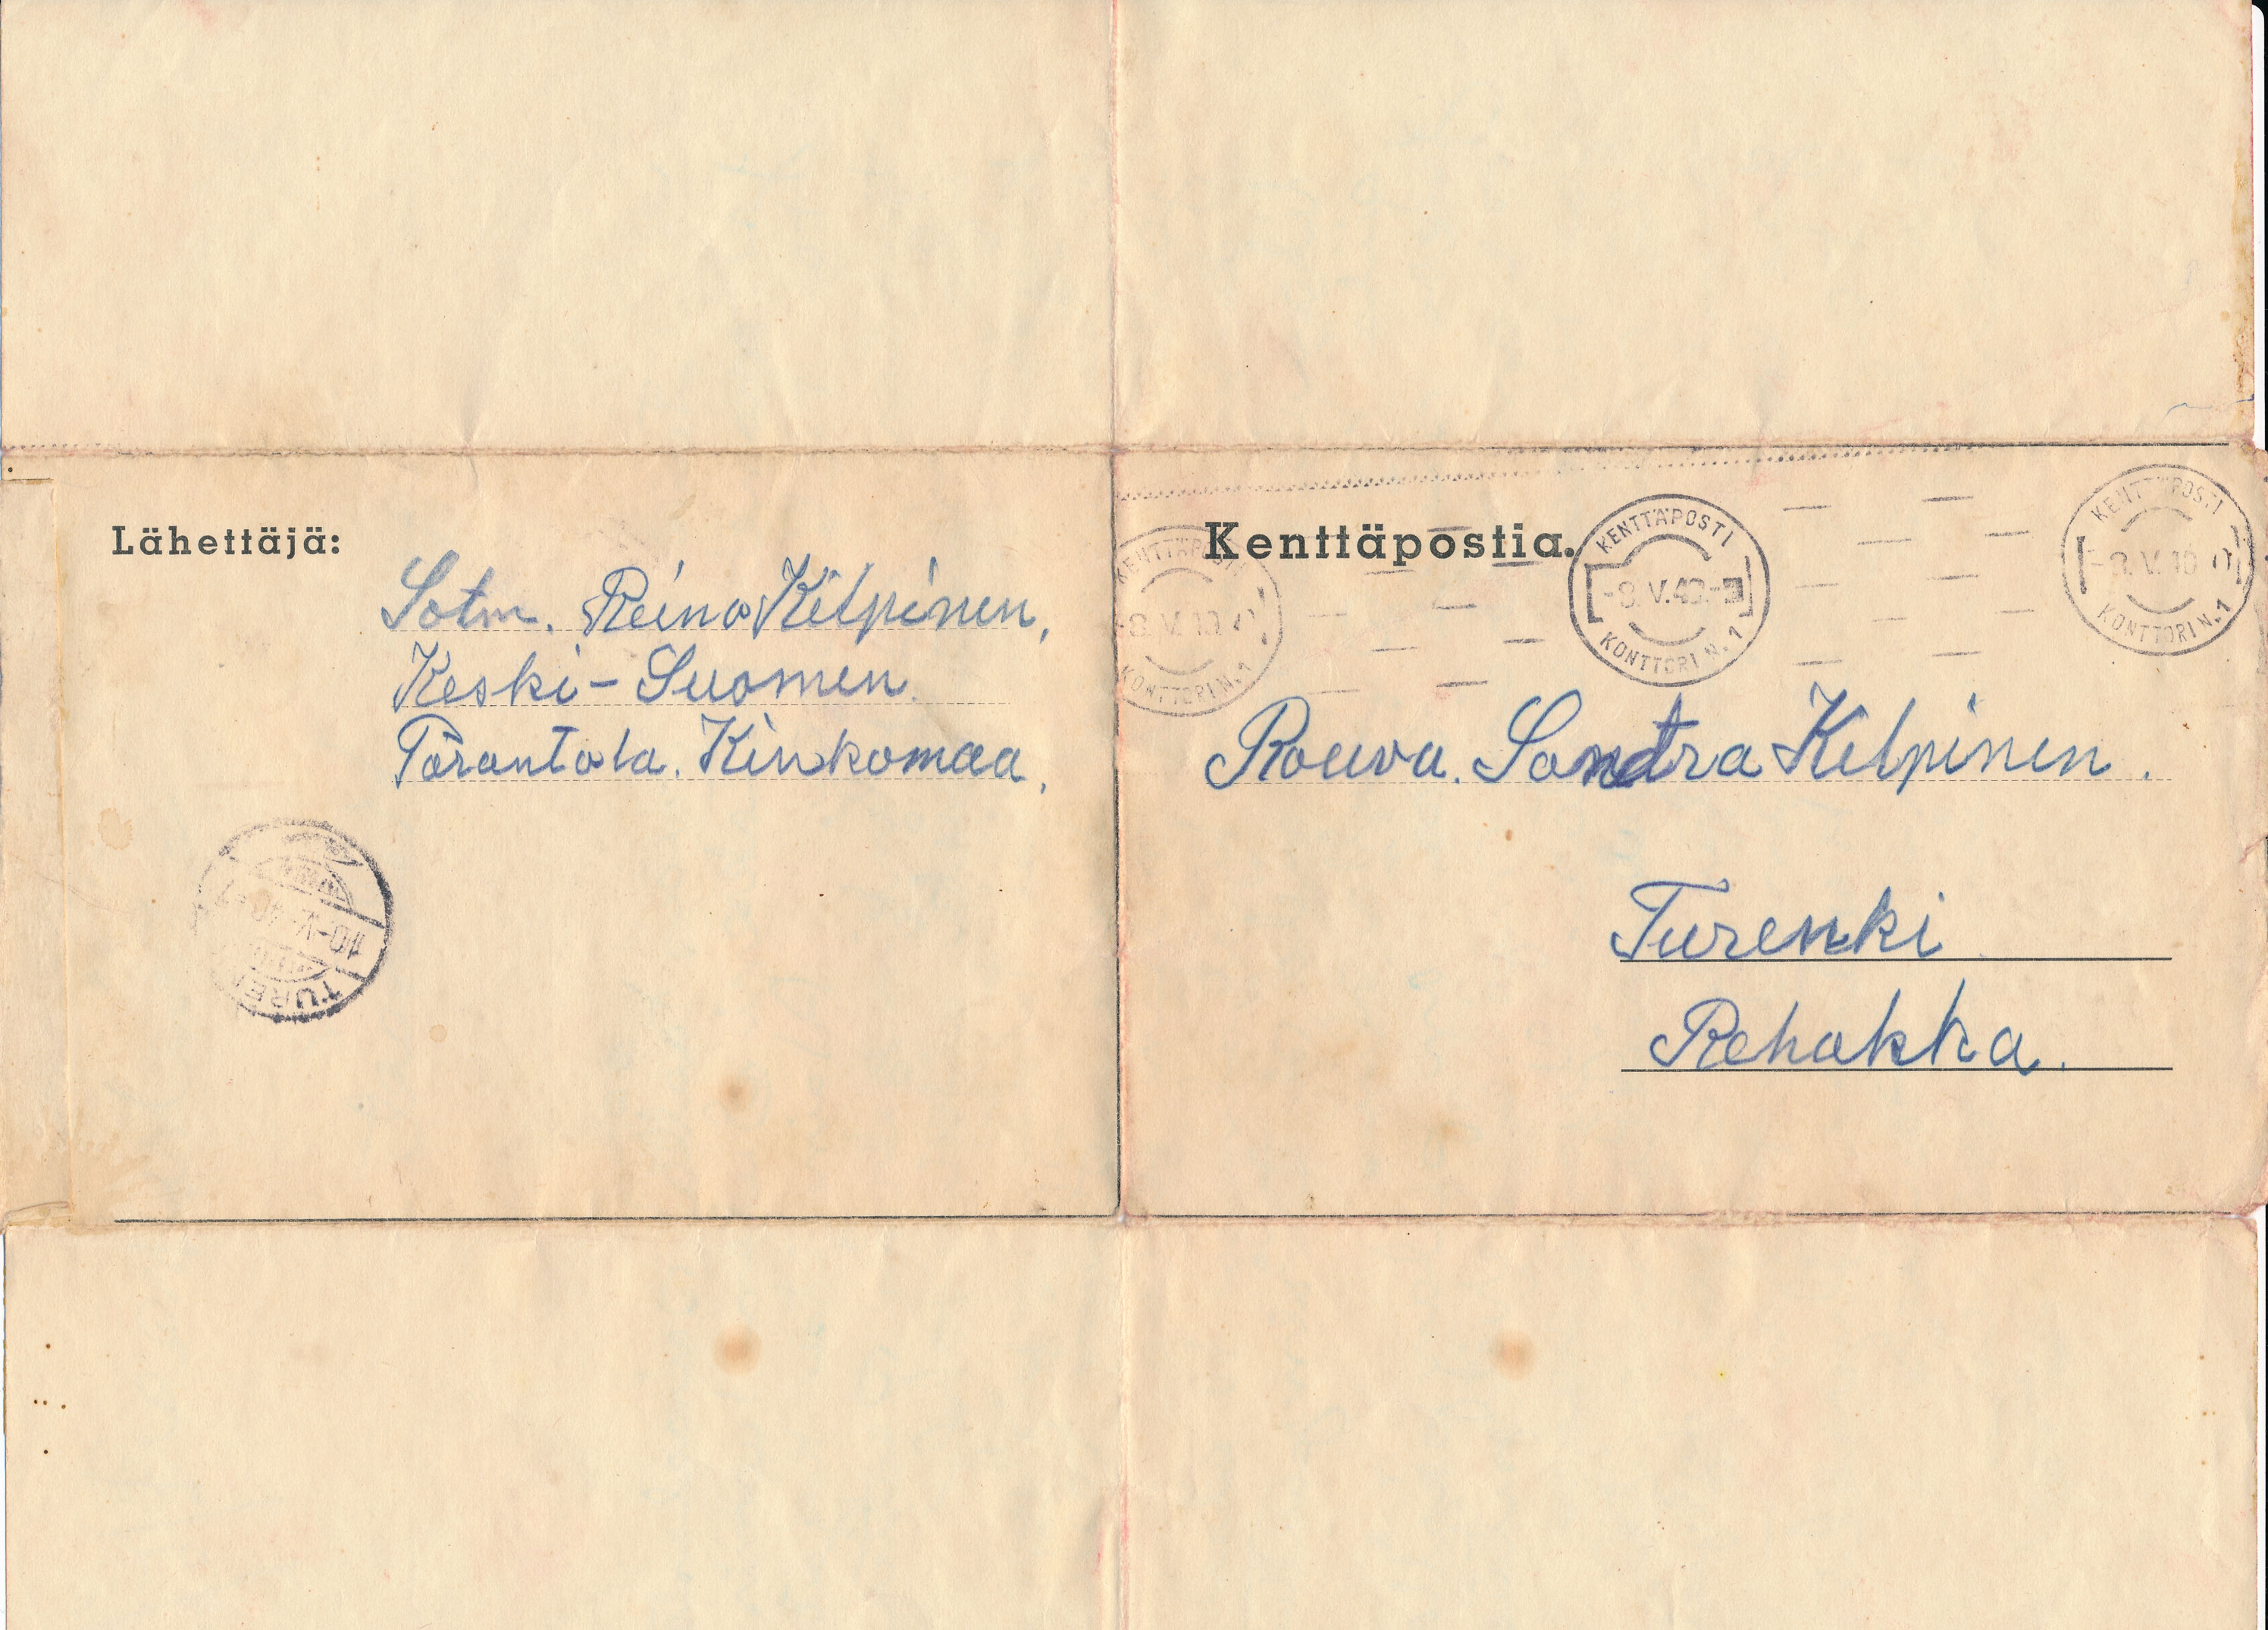 Lähettäjä:
Sotm. Reino Kilpinen,
Keski-Suomen.
Parantola. Kinkomaa,
TURE
10-V-40
Kenttäpostia.
KENTTÄPOSTI
-8.V.40.-
KONTTORI N.1
KENTTÄPOSTI
-8.V.40
KONTTORI N.1
KENTTÄPOSTI
8.V.40
KONTTORI N.1
Rouva. Sandra Kilpinen.
Turenki
Rehakka.